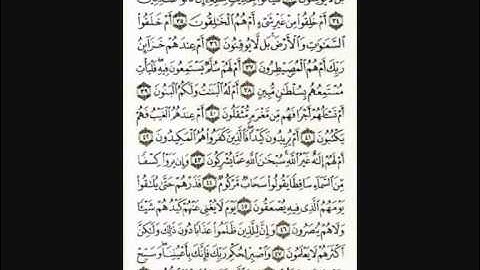 بَل لَّا يُؤْمِنُونَ ﴿٣٣﴾ فَلْيَأْتُوا۟ بِحَدِيثٍ مِّثْلِهِۦٓ إِن كَانُوا۟ صَٰدِقِينَ
﴿٣٤﴾ أَمْ خُلِقُوا۟ مِنْ غَيْرِ شَىْءٍ أَمْ هُمُ ٱلْخَٰلِقُونَ ﴿٣٥﴾ أَمْ خَلَقُوا۟
ٱلسَّمَٰوَٰتِ وَٱلْأَرْضَ ۚ بَل لَّا يُوقِنُونَ ﴿٣٦﴾ أَمْ عِندَهُمْ خَزَآئِنُ
رَبِّكَ أَمْ هُمُ ٱلْمُصَۣيْطِرُونَ ﴿٣٧﴾ أَمْ لَهُمْ سُلَّمٌ يَسْتَمِعُونَ فِيهِ ۖ فَلْيَأْتِ
مُسْتَمِعُهُم بِسُلْطَٰنٍ مُّبِينٍ ﴿٣٨﴾ أَمْ لَهُ ٱلْبَنَٰتُ وَلَكُمُ ٱلْبَنُونَ ﴿٣٩﴾
أَمْ تَسْـَٔلُهُمْ أَجْرًا فَهُم مِّن مَّغْرَمٍ مُّثْقَلُونَ ﴿٤٠﴾ أَمْ عِندَهُمُ ٱلْغَيْبُ فَهُمْ
يَكْتُبُونَ ﴿٤١﴾ أَمْ يُرِيدُونَ كَيْدًا ۖ فَٱلَّذِينَ كَفَرُوا۟ هُمُ ٱلْمَكِيدُونَ ﴿٤٢﴾
أَمْ لَهُمْ إِلَٰهٌ غَيْرُ ٱللَّهِ ۚ سُبْحَٰنَ ٱللَّهِ عَمَّا يُشْرِكُونَ ﴿٤٣﴾ وَإِن يَرَوْا۟ كِسْفًا
مِّنَ ٱلسَّمَآءِ سَاقِطًا يَقُولُوا۟ سَحَابٌ مَّرْكُومٌ ﴿٤٤﴾ فَذَرْهُمْ حَتَّىٰ يُلَٰقُوا۟
يَوْمَهُمُ ٱلَّذِى فِيهِ يُصْعَقُونَ ﴿٤٥﴾ يَوْمَ لَا يُغْنِى عَنْهُمْ كَيْدُهُمْ شَيْـًٔا
وَلَا هُمْ يُنصَرُونَ ﴿٤٦﴾ وَإِنَّ لِلَّذِينَ ظَلَمُوا۟ عَذَابًا دُونَ ذَٰلِكَ وَلَٰكِنَّ
أَكْثَرَهُمْ لَا يَعْلَمُونَ ﴿٤٧﴾ وَٱصْبِرْ لِحُكْمِ رَبِّكَ فَإِنَّكَ بِأَعْيُنِنَا ۖ وَسَبِّحْ